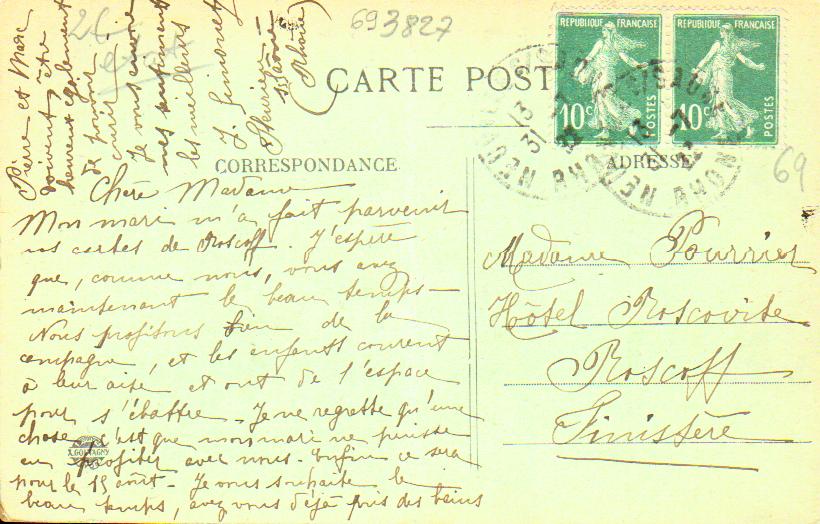 CARTE POST
CORRESPONDANCE
ADRESSE
REPUBLIQUE FRANÇAISE
10c POSTES
REPUBLIQUE FRANÇAISE
10c POSTES
693827
69
Chère Madame
Mon mari m'a fait parvenir
vos cartes de Roscoff. J'espère
que, comme nous, vous avez
maintenant le beau temps -
Nous profitons bien de la
campagne, et les enfants courent
à leur aise et ont de l'espace
pour s'ébattre - Je ne regrette qu'une
chose, c'est que mon mari ne puisse
en profiter avec nous - Enfin ce sera
pour le 15 août - Je vous souhaite le
beau temps, avez vous déjà pris des bains
Pierre et Marc
doivent être
heureux également
de pouvoir
courir
Je vous envoie
mes sentiments
les meilleurs
J. Simonet
Fleurieu
s/Saône
Rhône
Madame Pourrier
Hôtel Roscovite
Roscoff
Finistère